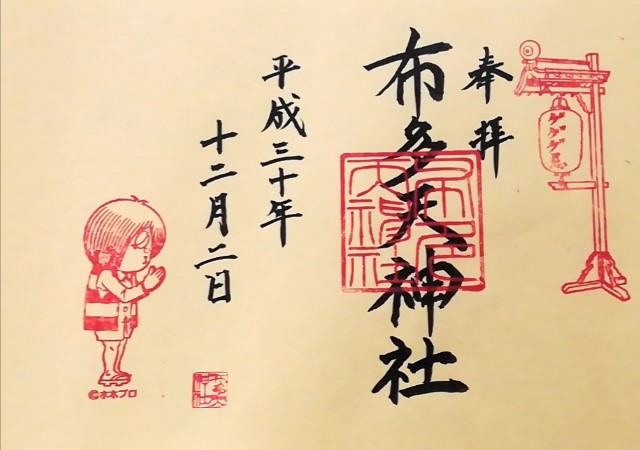 奉拝
布多天神社
平成三十年
十二月二日
ゲゲゲ忌
©水木プロ